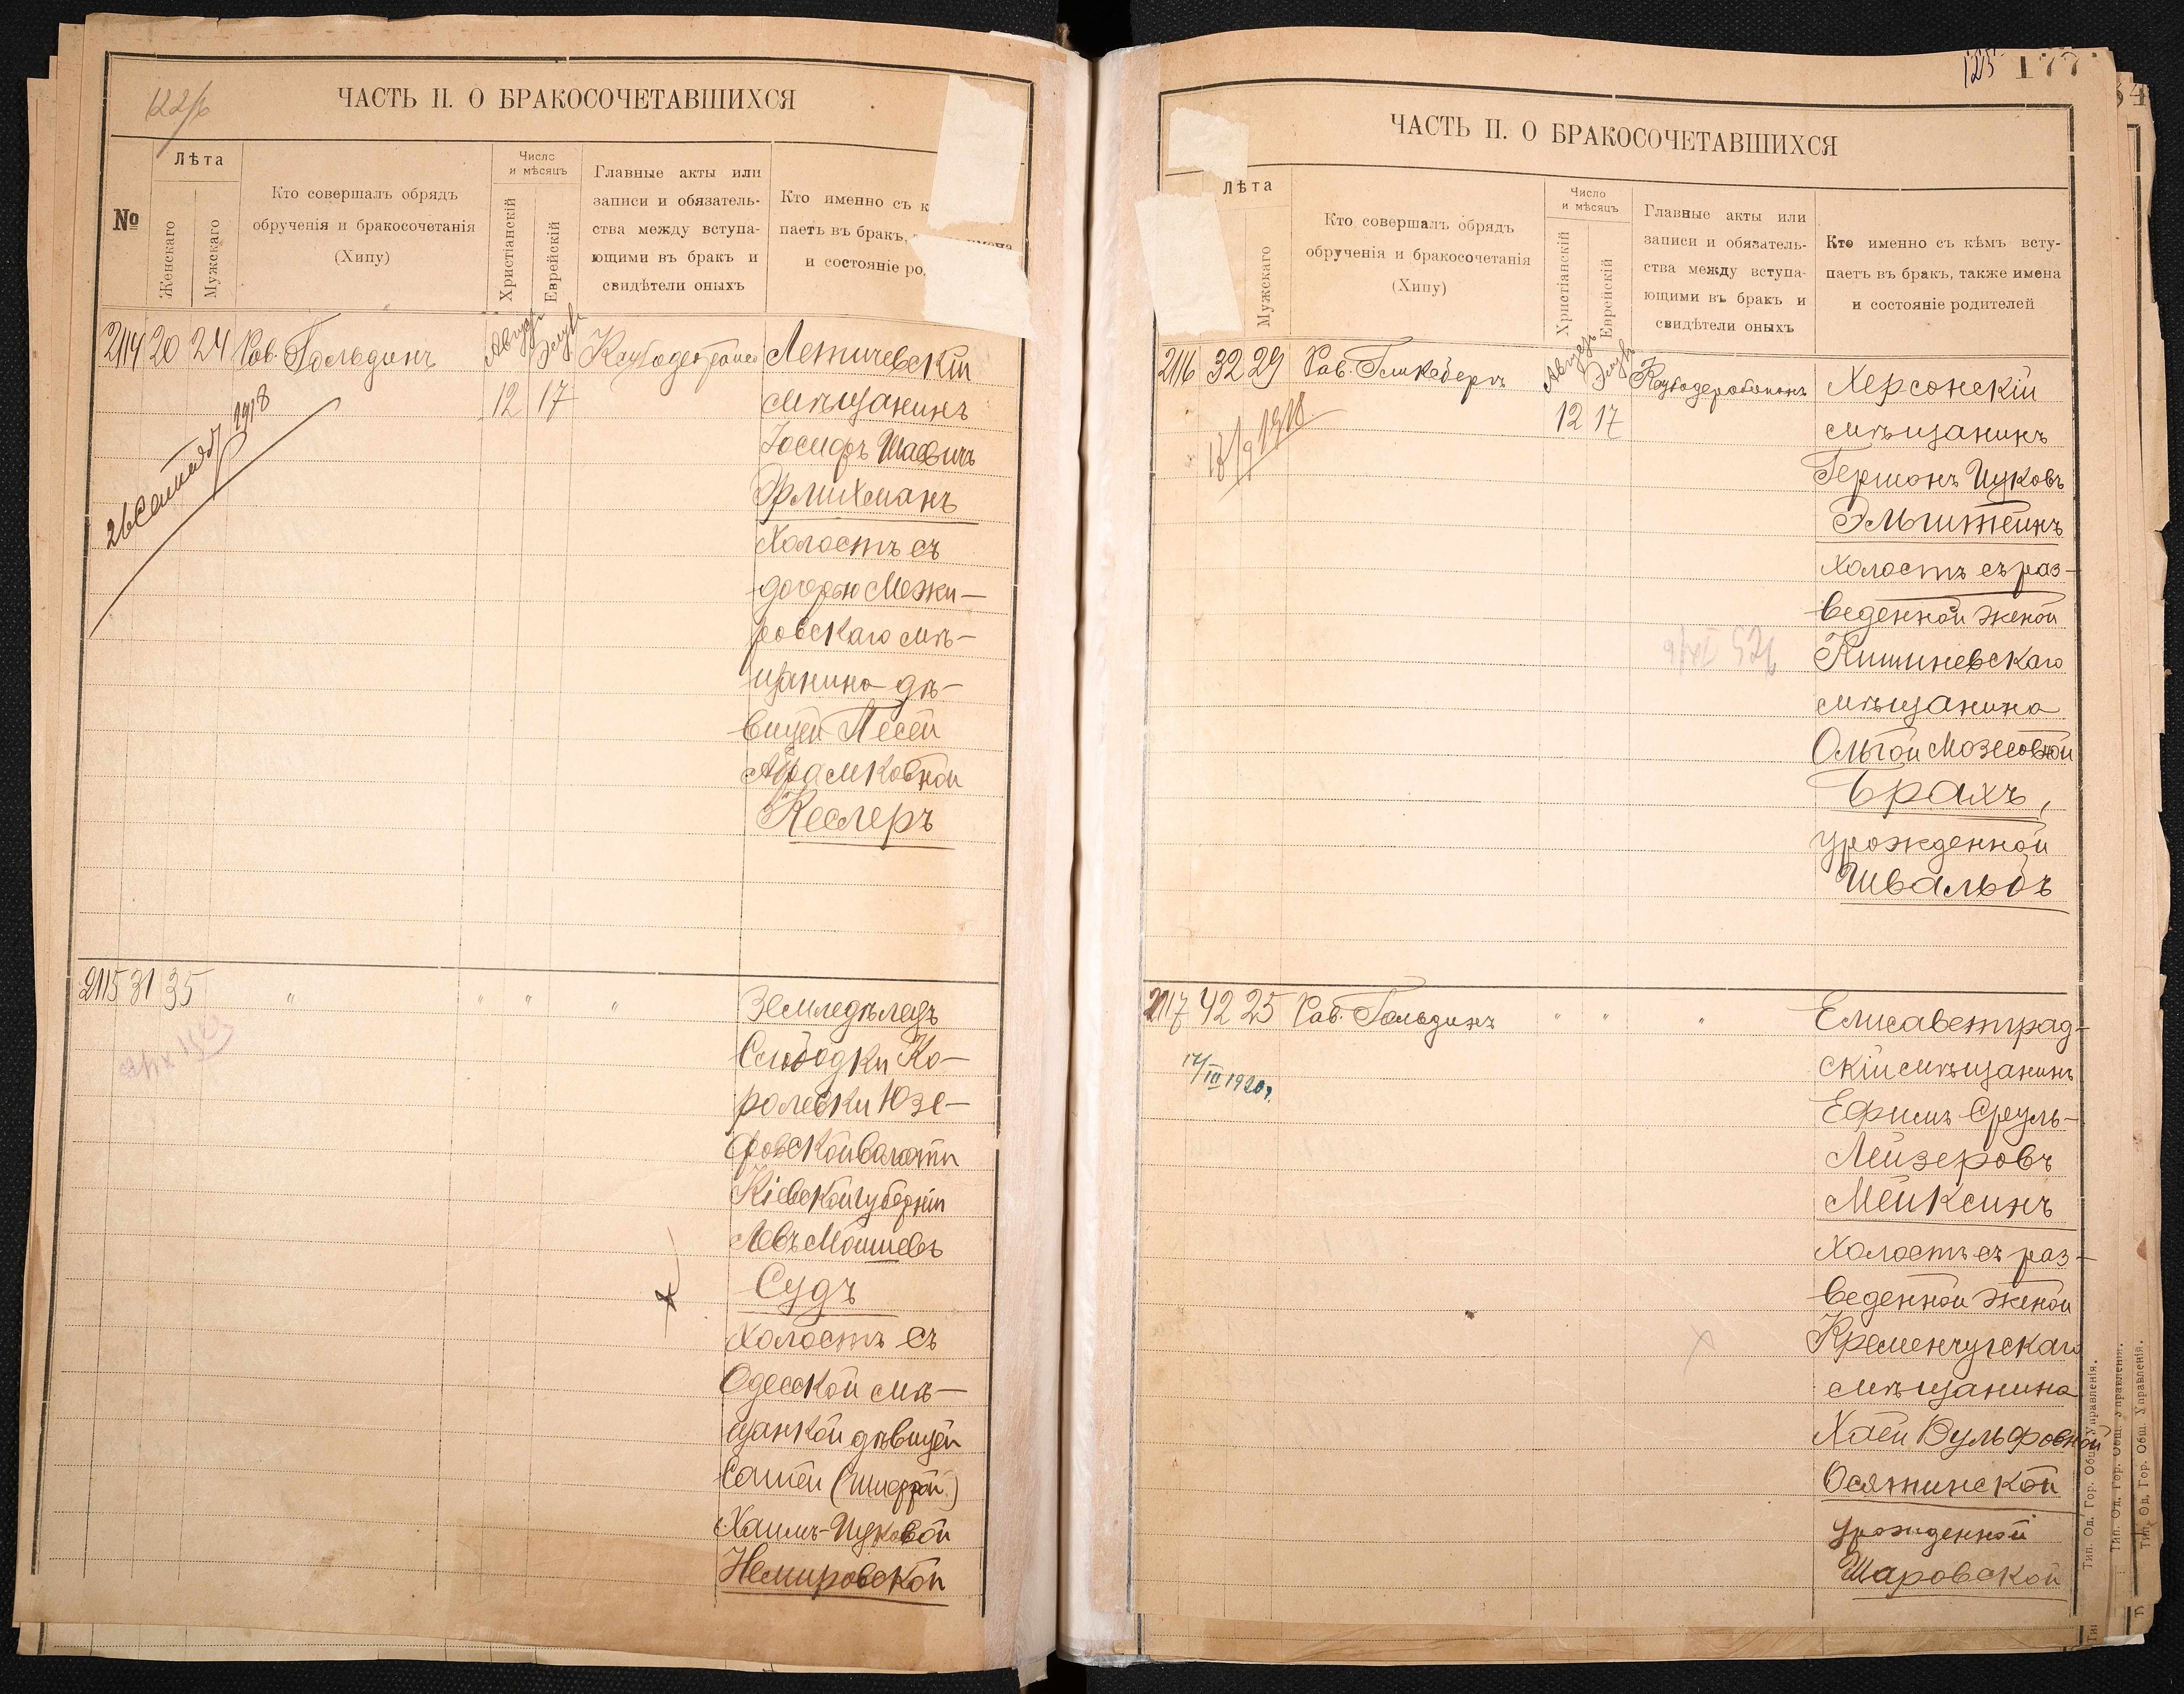 122/б
ЧАСТЬ II. О БРАКОСОЧЕТАВШИХСЯ
№
Лѣта
Женскаго
Мужскаго
Кто совершалъ обрядъ
обрученія и бракосочетанія
(Хипу)
Число
и мѣсяцъ
Христіанскій
Еврейскій
Главные акты или
записи и обязатель-
ства между вступа-
ющими въ бракъ и
свидѣтели оныхъ
Кто именно съ к
паетъ въ бракъ,
и состояніе ро
2114 20 24 Рав. Гольдинъ
Август Элувъ
12 17
26 Сентяб 1918
Летичевскій
мѣщанинъ
Іосифъ Шаевичъ
Эрлихманъ
Холостъ съ
дочерью Межи-
ровскаго мѣ-
щанина дѣ-
вицей Песей
Абрамковной
Кеслеръ
2115 31 35 " " " "
Земледѣлецъ
Слободки Ко-
ролевки Юзе-
фовской волости
Кіевской губерніи
Левъ Мошиевъ
Судъ
Холостъ съ
Одесской мѣ-
щанкой дѣвицей
Сашей (Шифрой)
Хаимъ-Ицковой
Немировской
125 177
ЧАСТЬ II. О БРАКОСОЧЕТАВШИХСЯ
Лѣта
Мужскаго
Кто совершалъ обрядъ
обрученія и бракосочетанія
(Хипу)
Число
и мѣсяцъ
Христіанскій
Еврейскій
Главные акты или
записи и обязатель-
ства между вступа-
ющими въ бракъ и
свидѣтели оныхъ
Кто именно съ кѣмъ всту-
паетъ въ бракъ, также имена
и состояніе родителей
2116 32 29 Рав. Гликсбергъ
Август Элувъ
12 17
Херсонскій
мѣщанинъ
Гершонъ Ицковъ
Эльштейнъ
холостъ съ раз-
веденной женой
Кишиневскаго
мѣщанина
Ольгой Мозесовной
Брахъ,
урожденной
Швальбъ
2117 42 25 Рав. Гольдинъ " " "
17/III 1920г.
Елисаветград-
скій мѣщанинъ
Ефимъ Сруль-
Лейзеровъ
Мейксинъ
Холостъ съ раз-
веденной женой
Кременчугскаго
мѣщанина
Хаей Вульфовной
Осятинской
урожденной
Шаровской
Тип. Од. Гор. Общ. Управленія.
Тип. Од. Гор. Общ. Управленія.
Тип. Од. Гор. Общ. Управленія.